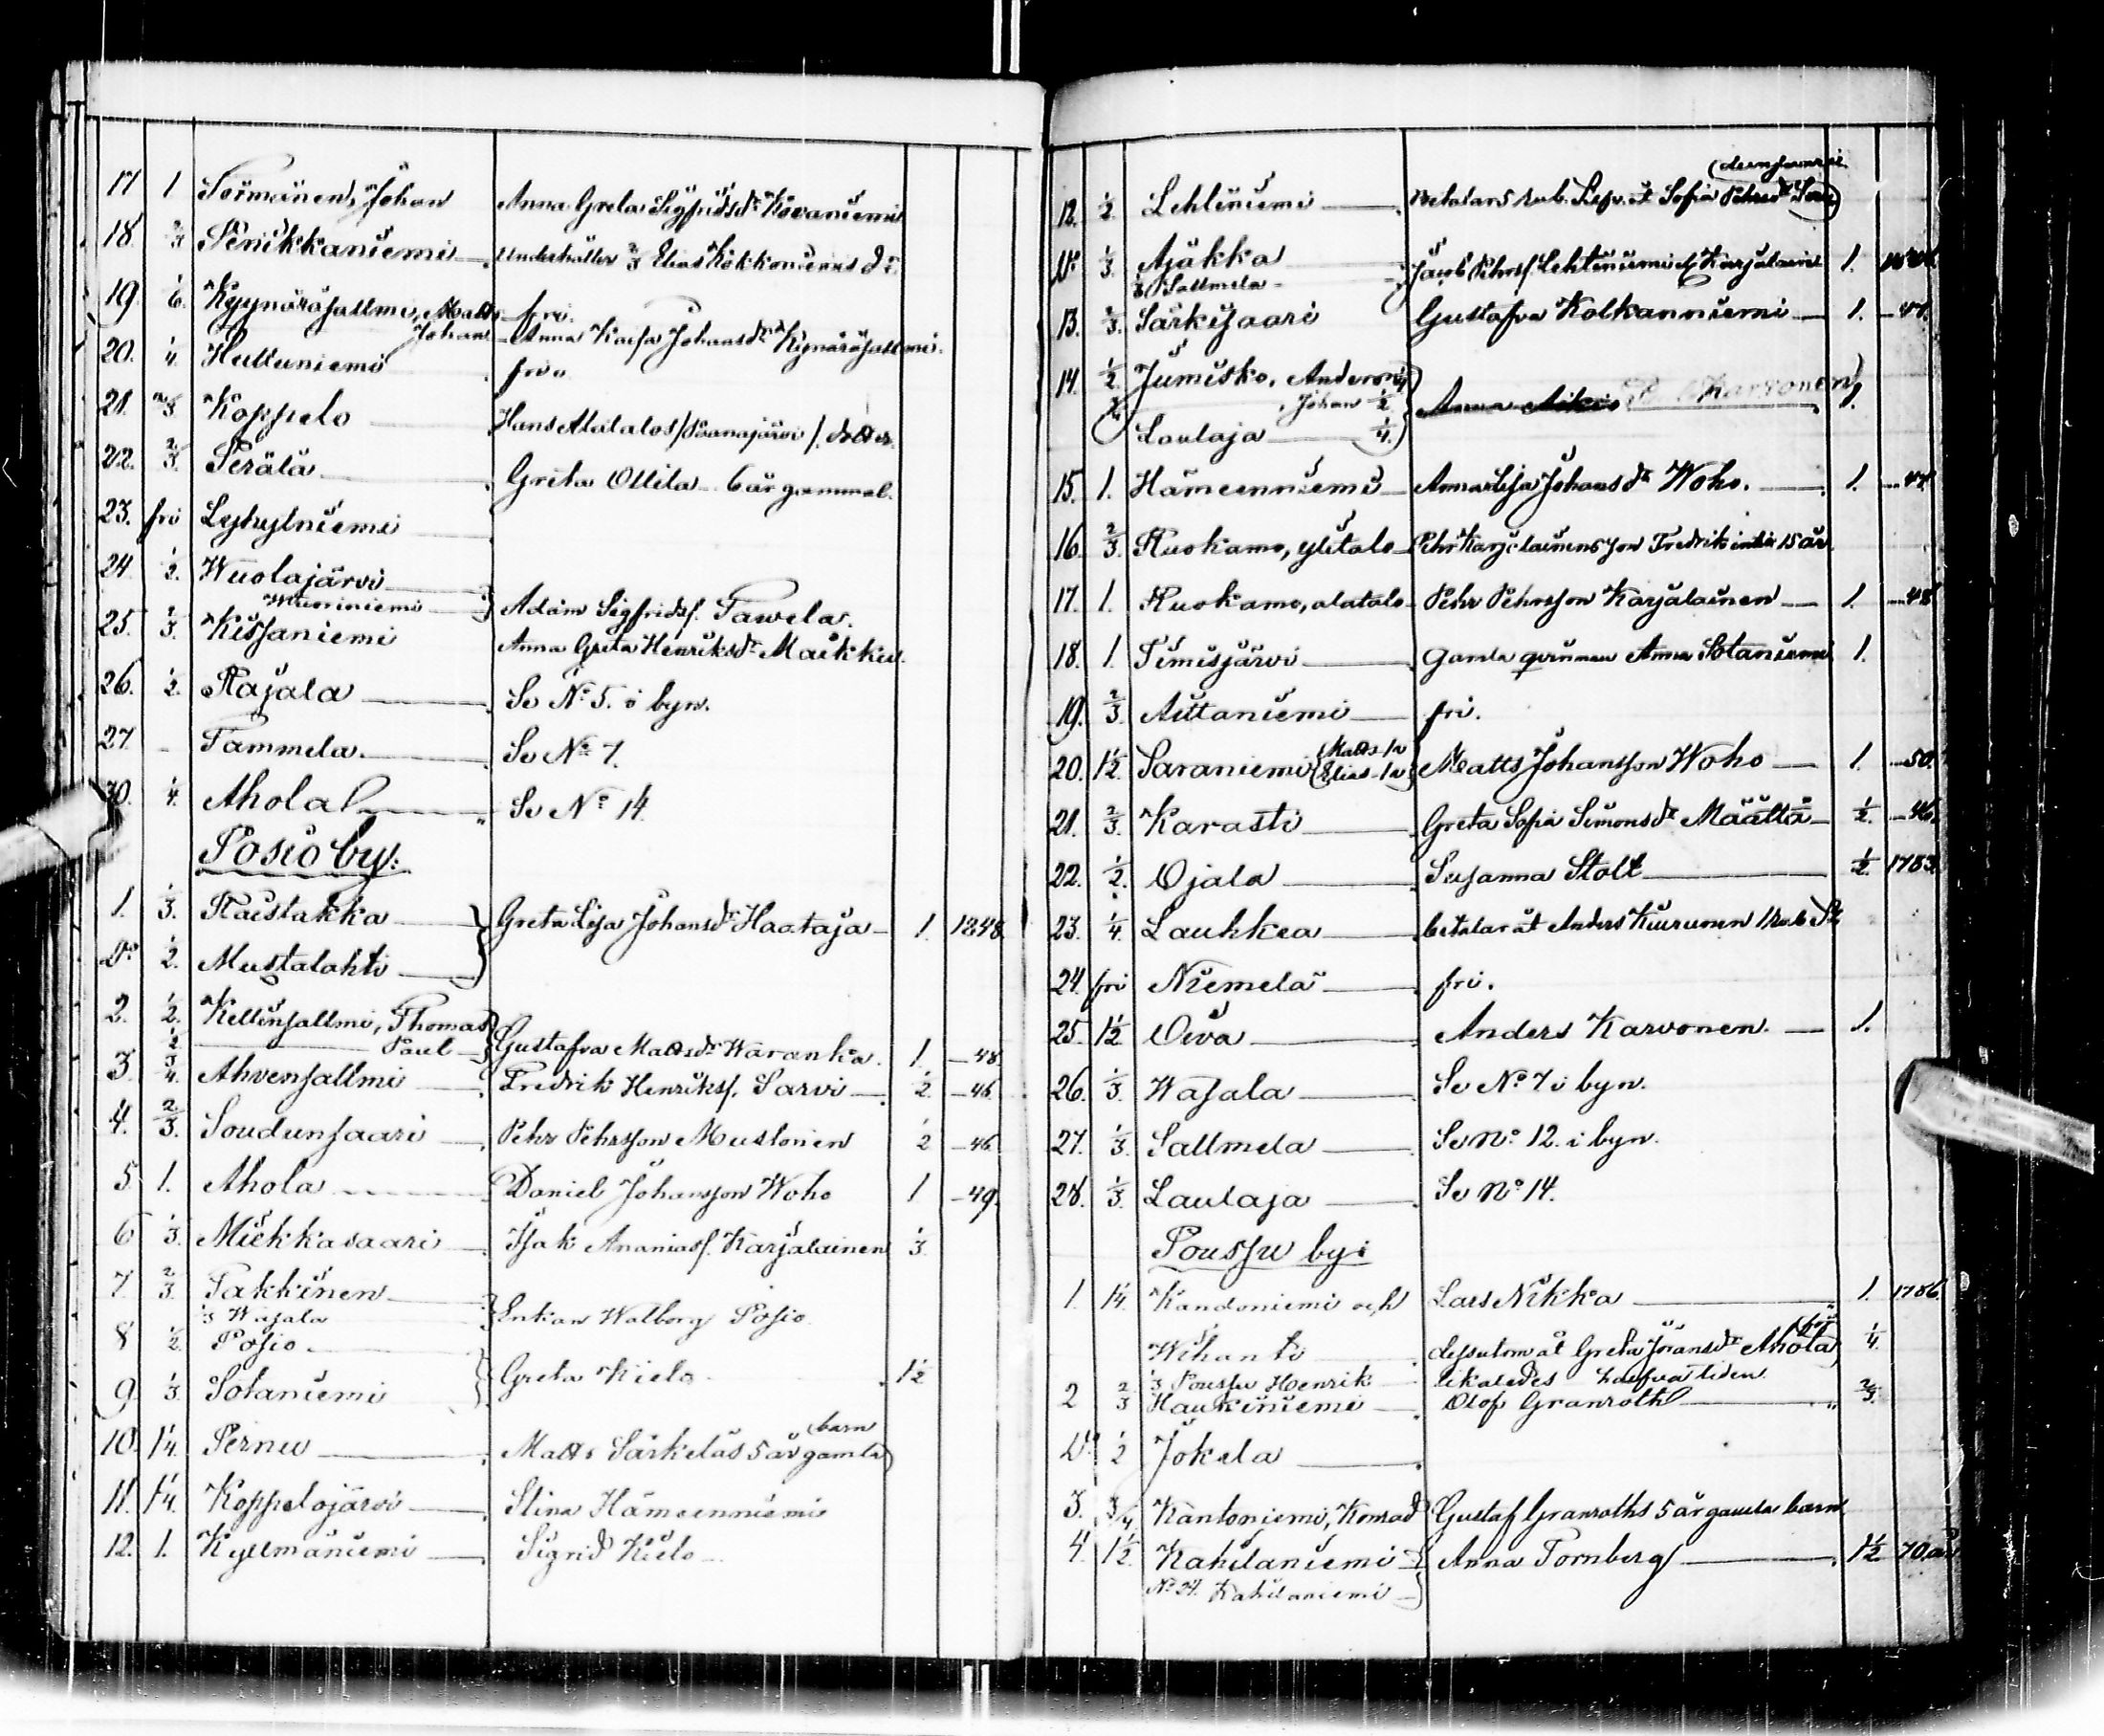 17 1 Törmänen, Johan Anna Greta Sigfridsdr Kovaniemi
18. Perikkaniemi Underhåller 2/3 Elias Kokkoniemis dr.
19. 1/6. Kyynäräsallmi, Matts fri.
Johan Anna Kajsa Johansdr Kynäräsallmi.
20. 1/4. Huttuniemi fri.
21. 2/3. Koppelo Hans Alatalos /Soanajärvi/. dotter.
22. 2/3. Perälä Greta Ollila 6 år gammal.
23. fri Leghylniemi
24. 1/2. Wuolajärvi
Wuoriniemi Adam Sigfridss. Tawela.
25. 2/3. Kisjaniemi Anna Greta Henriksdr Maikku.
26. 1/2. Rajala Se No 5. i byn.
27. - Tammela. Se No 7.
30. 1/4. Ahola Se No 14.
Posio by:
1. 1/3. Raistakka Greta Lisa Johansdr Haataja 1. 1848.
Do 1/2. Mustalahti
2. 1/2. Kellinsallmi, Thomas
1/2 Paul Gustafva Mattsdr Waranka. 1 48
3 3/4. Ahvensallmi Fredrik Henrikss. Sarvi 1/2. 46
4. 2/3. Soudunsaari Pehr Pehrsson Mustonen 1/2 46
5. 1. Ahola Daniel Johansson Woho 1 49.
6 1/3. Miekkasaari Isak Ananiass. Karjalainen 1/3.
7 2/3. Takkinen
1/3 Wajala Enkan Walborg Posio
8 1/2. Posio
9. 1/3. Sotaniemi Greta Kielo 1 1/2
barn
10. 1 1/4. Pernu Matts Särkeläs 5 år gamla
11. 1 1/4. Koppelojärvi Stina Hämeenniemi
12. 1. Kyllmäniemi Sigrid Kielo
12. 1/2. Lehtiniemi Betalar 5 rub. Silfv. åt Sofia Pehrsdr
Do 1/3. Ajäkka Jacob Pehrss. Lehtiniemi el. Karjalainen 1.
1/3 Sallmela
13. 2/3. Särkisaari Gustafva Kolkanniemi 1. 47.
14. 1/2. Jumisko, Anders
Johan 1/2 Anna Aikio Karvonen 1.
Laulaja 1/4.
15. 1. Hämeenniemi Anna Lisa Johansdr Woho. 1. 47
16. 2/3. Ruokamo, ylitalo Pehr Karjalainens son Fredrik intill 15 år
17. 1. Ruokamo, alatalo Pehr Pehrsson Karjalainen 1. 48
18. 1. Timisjärvi Gamla qvinnan Anna Sotaniemi 1.
19. 2/3. Aittaniemi fri.
20. 1 1/2. Saraniemi Matts Elias Matts Johansson Woho 1. 50.
21. 2/3. Karasti Greta Sofia Simonsdr Määttä 1/2. 46.
22. 1/2. Ojala Susanna Stolt 1/2. 1783.
23. 1/4. Lauhkea betalar åt Anders Kuirunen 1 Rub S.
24. fri Niemelä fri.
25. 1 1/2. Oiva Anders Karvonen. 1.
26. 1/3. Wajala Se No 7 i byn.
27. 1/3. Sallmela Se No 12. i byn.
28. 1/3. Laulaja Se No 14.
Poussu by:
1. 1 1/4. Kandoniemi och Lars Nikka 1. 1786.
Wihanto dessutom åt Greta Jöransdr Ahola 1/4.
1/3 Poussu Henrik likaledes halfva tiden
2 2/3 Haukiniemi Olof Granroth 2/3.
Do 1/2 Jokela
3. 3/4 Kantoniemi, Konrad Gustaf Granroths 5 år gamla barn
4. 1 1/2. Kahilaniemi Anna Tornberg 1 1/2 70 år
No 24. Kahilaniemi